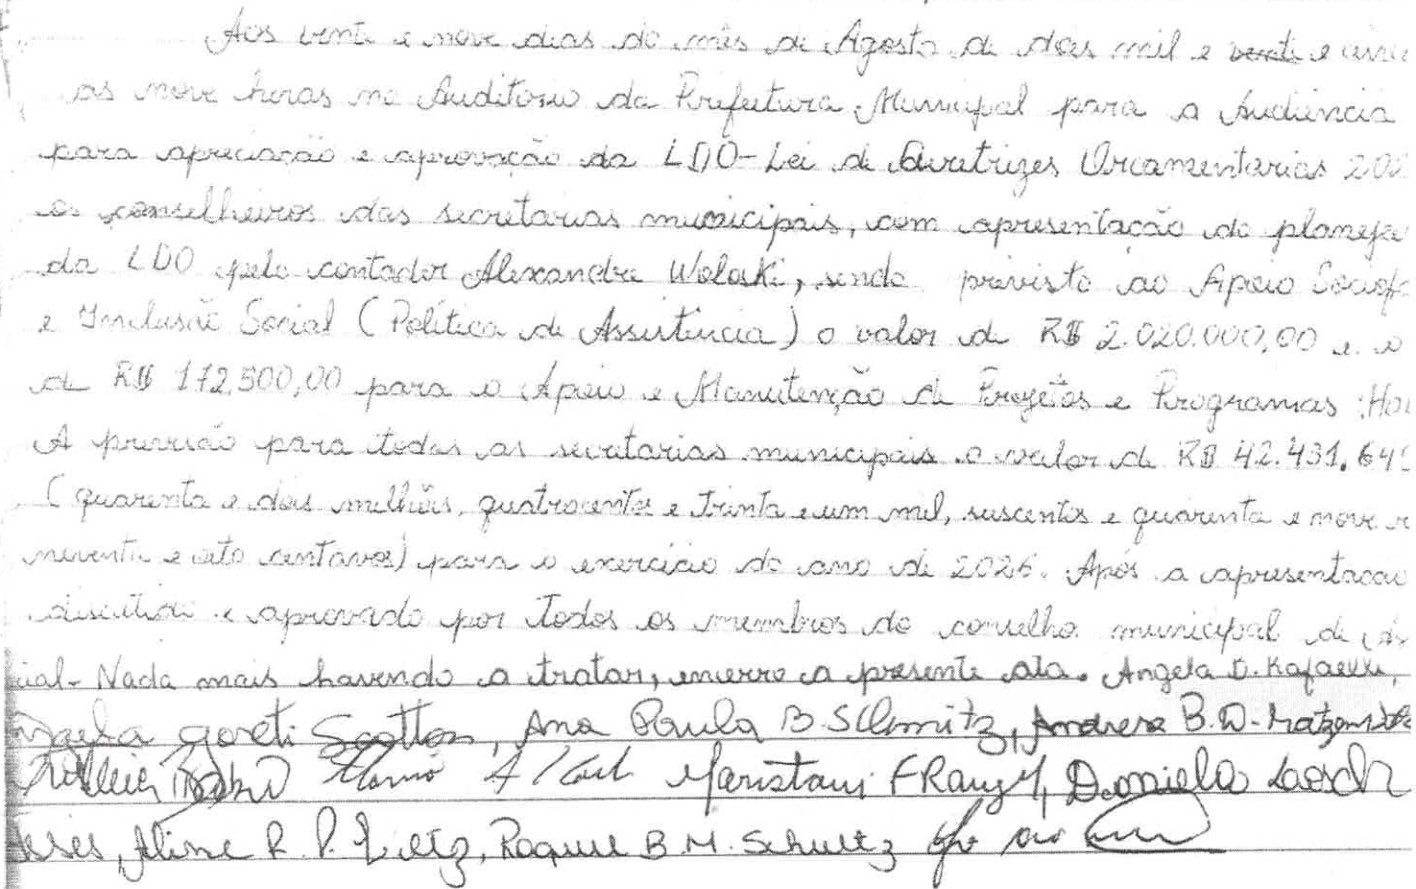 Aos vinte e nove dias do mês de Agosto de dois mil e vinte e cinc
as nove horas no Auditorio da Prefeitura Municipal para a Audiência
para apreciação e aprovação da LDO-Lei de Diretrizes Orcamentarias 202
os conselheiros das secretarias municipais, com apresentação do planeja
da LDO pelo contador Alexandre Woloski, sendo previsto ao Apoio Sociof
e Inclusão Social (Política de Assistência) o valor de R$ 2.020.000,00 e o
de R$ 172.500,00 para o Apoio e Manutenção de Projetos e Programas
A previsão para todas as secretarias municipais o valor de R$ 42.431.649
(quarenta e dois milhões, quatrocentos e trinta e um mil, seiscentos e quarenta e nove r
noventa e oito centavos) para o exercício do ano de 2026. Após a apresentacao
discutido e aprovado por todos os membros do conselho municipal de As
cial. Nada mais havendo a tratar, encerro a presente ata. Angela D. Rafaelli,
Goreti Scotton, Ana Paula B. Schmitz, Andresa B. W.
Maristani Franz, Daniela Lasch
Aline R. P. Zietz, Raquel B. M. Schultz